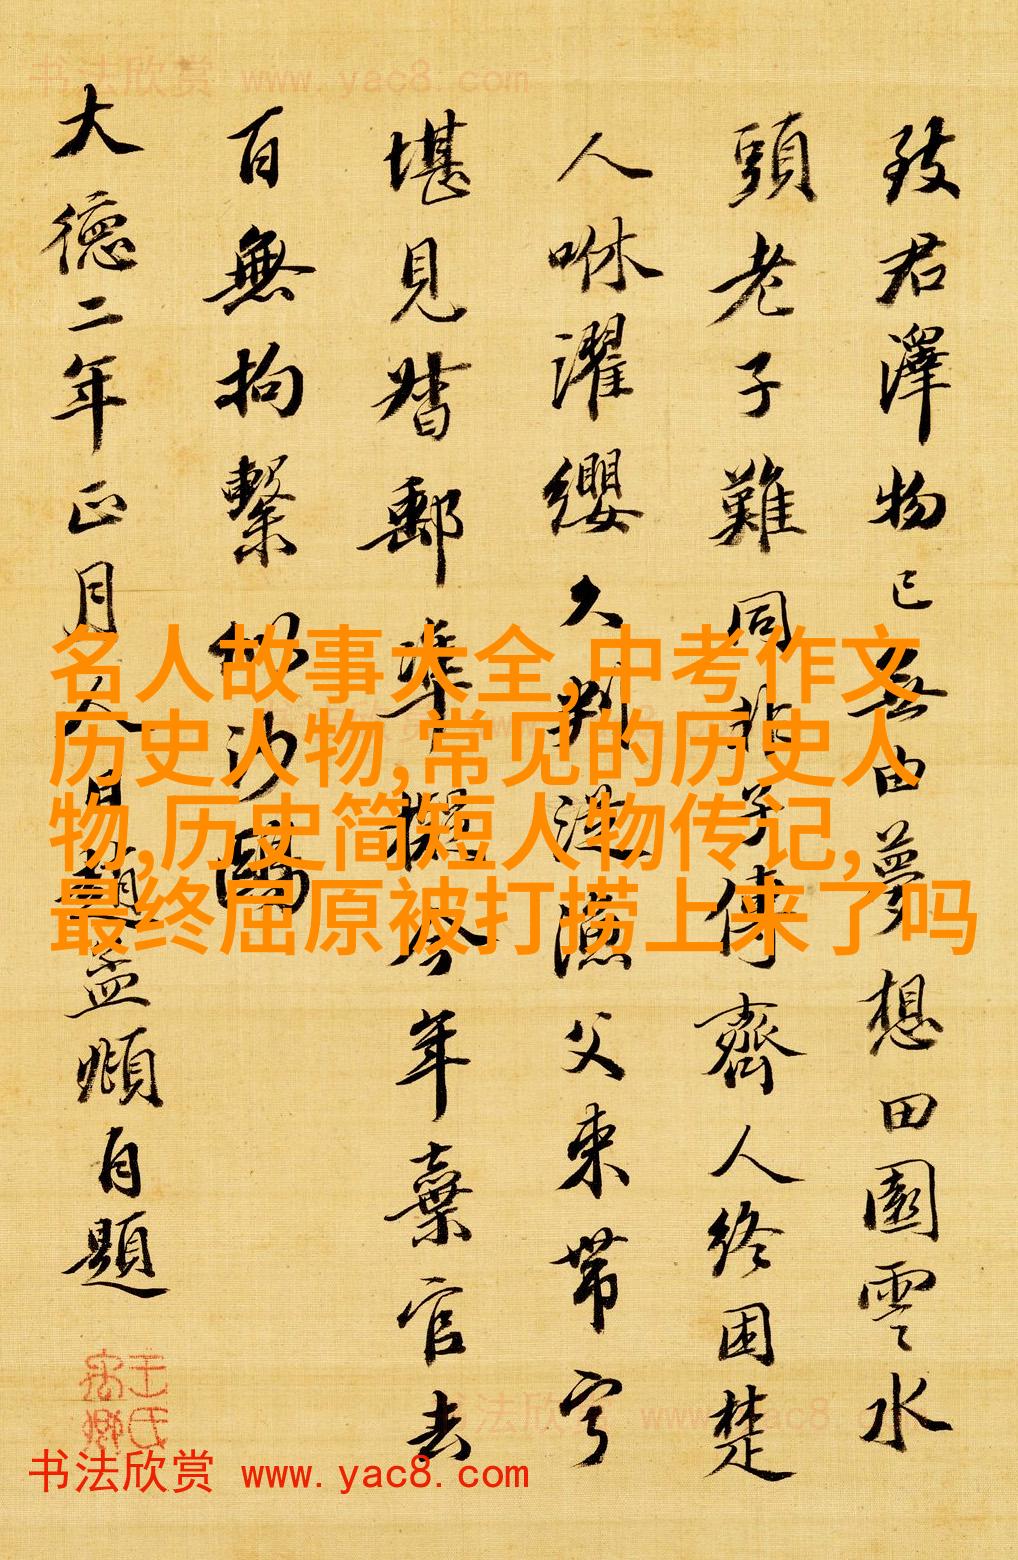 书法欣赏 www.yac8.com
致君澤物已無由夢想田園雲水
頭老子難同非子傳齊人終困楚
人咻濯纓久判從漁父束帶寧
堪見督郵準擬今年棄官去
百無拘繫似沙鷗
大德二年正月人日趙孟頫自題
名人故事大全,中考作文
历史人物,常见的历史人
物,历史简短人物传记,
最终屈原被打捞上来了吗
书法欣赏 www.yac8.com
书法欣赏 www.yac8.com